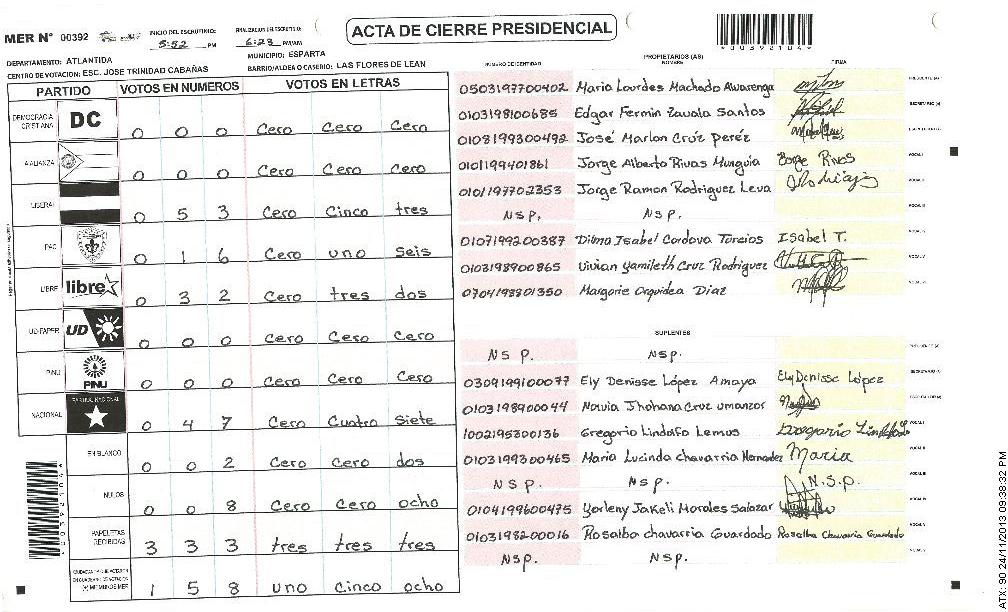 ACTA DE CIERRE PRESIDENCIAL
MER N° 00392
INICIO DEL ESCRUTINIO: 5:52 PM
FINALIZACION DEL ESCRUTINIO: 6:23 PM/AM
DEPARTAMENTO: ATLANTIDA
MUNICIPIO: ESPARTA
CENTRO DE VOTACION: ESC. JOSE TRINIDAD CABAÑAS
BARRIO/ALDEA O CASERIO: LAS FLORES DE LEAN
PARTIDO VOTOS EN NUMEROS VOTOS EN LETRAS
DEMOCRACIA CRISTIANA DC 0 0 0 Cero Cero Cero
ALIANZA 0 0 0 Cero Cero Cero
LIBERAL 0 5 3 Cero Cinco tres
PAC 0 1 6 Cero uno seis
LIBRE libre 0 3 2 Cero tres dos
UD-FAPER UD 0 0 0 Cero Cero Cero
PINU PINU 0 0 0 Cero Cero Cero
NACIONAL PARTIDO NACIONAL 0 4 7 Cero Cuatro siete
EN BLANCO 0 0 2 Cero Cero dos
NULOS 0 0 8 Cero Cero ocho
PAPELETAS RECIBIDAS 3 3 3 tres tres tres
1 5 8 uno cinco ocho
PROPIETARIOS (AS)
NUMERO DE IDENTIDAD NOMBRE FIRMA
0503197700402 Maria Lourdes Machado Alvarenga PRESIDENTE (A)
0103198100685 Edgar Fermin Zavala Santos SECRETARIO (A)
0108199300492 José Marlon Cruz Peréz
0101199401861 Jorge Alberto Rivas Munguia Jorge Rivas VOCAL I
0101197702353 Jorge Ramon Rodriguez Leva VOCAL II
NSP. NSP. VOCAL III
0107199200387 Dilma Isabel Cordova Turcios Isabel T. VOCAL IV
0103198900865 Vivian Yamileth Cruz Rodriguez VOCAL V
0704198801350 Margorie Orquidea Diaz
SUPLENTES
NSP. NSP. PRESIDENTE (A)
0309199100077 Ely Denisse López Amaya Ely Denisse López SECRETARIO (A)
0103198900044 Norvia Jhohana Cruz Umanzor
1002195800136 Gregorio Lindolfo Lemus VOCAL I
0103199300465 Maria Lucinda Chavarria Hernandez Maria VOCAL II
NSP. NSP. N.S.P. VOCAL III
0104199600475 Yorleny Jakeli Morales Salazar VOCAL IV
0103198200016 Rosalba Chavarria Guardado Rosalba Chavarria Guardado VOCAL V
NSP. NSP.
ATX: 90 24/11/2013 09:38:32 PM